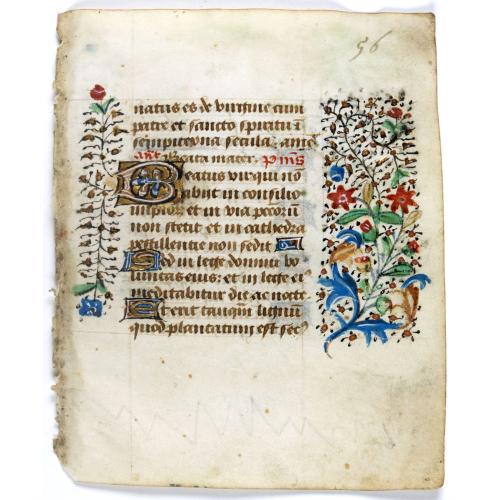 56
natus es de virgine cum
patre et sancto spiritu i
sempiterna secula. ante
ant Beata mater. p̄m̄s
Beatus vir qui no
abiit in consilio
impior et in via peccori
non stetit et in cathedra
pestilentie non sedit
Sed in lege domini vo
luntas eius: et in lege ei
meditabitur die ac nocte
Et erit tanqm lignu
quod plantatum est sec